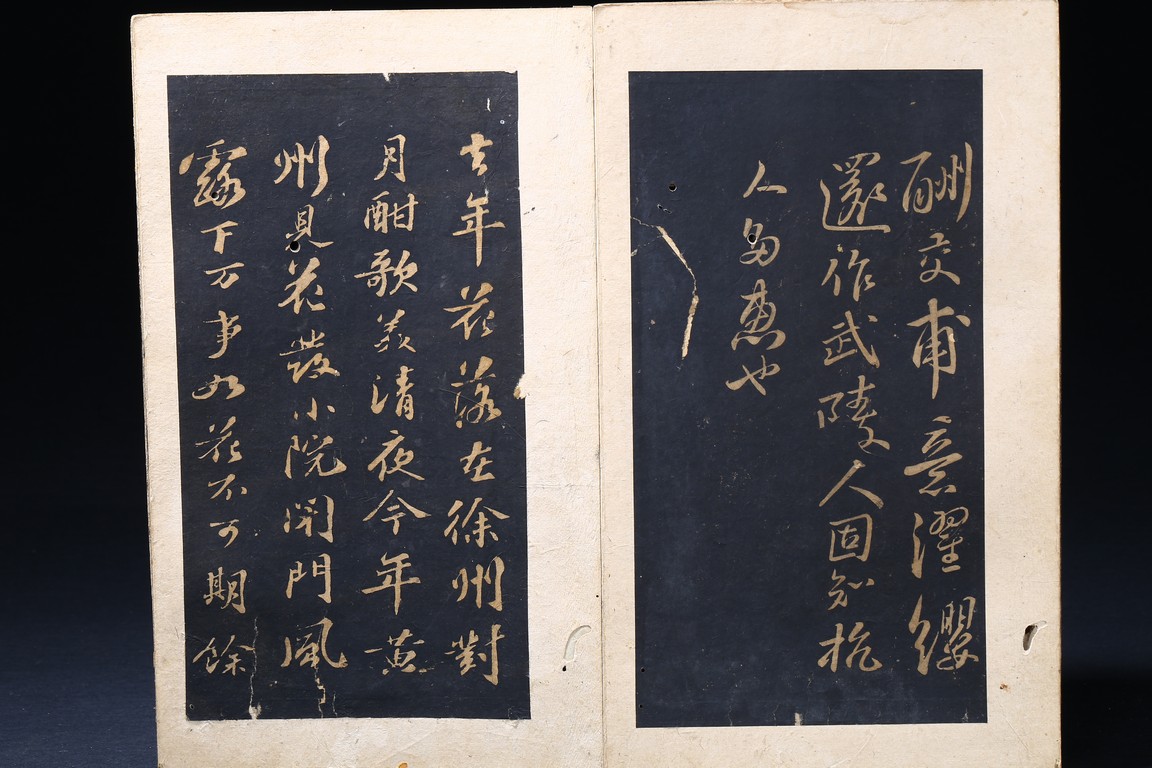 酬交甫意濯纓
還作武陵人固知杭
人多惠也
去年花落在徐州對
月酣歌美清夜今年黃
州見花發小院閉門風
露下万事如花不可期餘